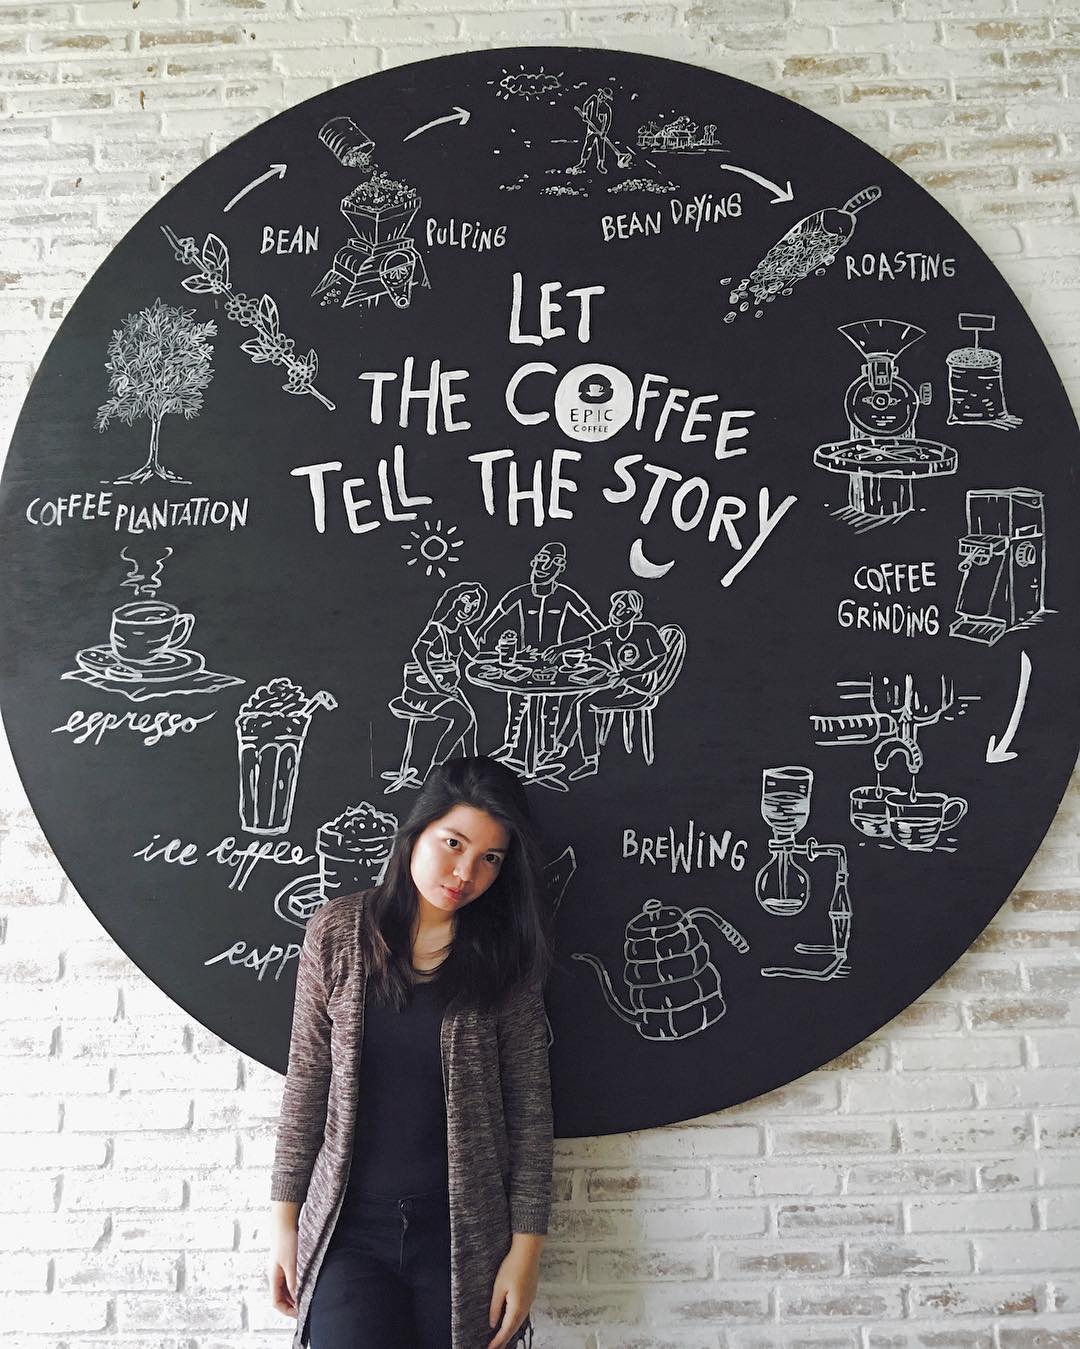 LET
THE COFFEE
EPIC
COFFEE
TELL THE STORY
COFFEE PLANTATION
BEAN PULPING
BEAN DRYING
ROASTING
COFFEE
GRINDING
BREWING
espresso
ice coffee